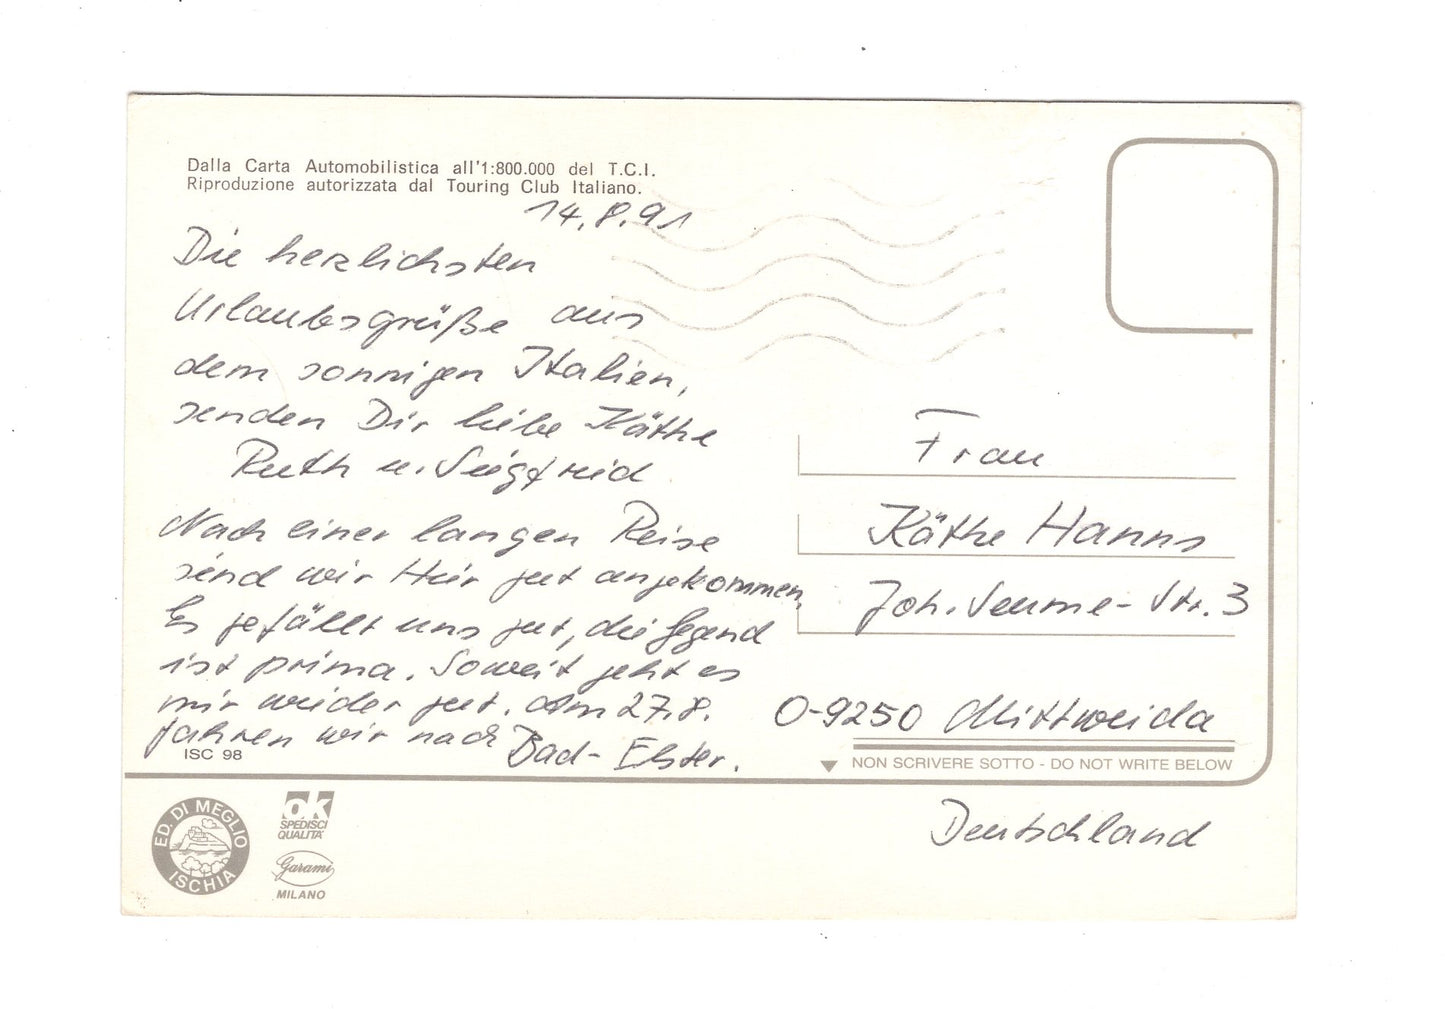 Dalla Carta Automobilistica all'1:800.000 del T.C.I.
Riproduzione autorizzata dal Touring Club Italiano.
14.8.91
Die herzlichsten
Urlaubsgrüße aus
dem sonnigen Italien,
senden Dir liebe Käthe
Ruth u. Siegfried
Nach einer langen Reise
sind wir Hier gut angekommen.
Es gefällt uns gut, die Gegend
ist prima. Soweit geht es
mir wieder gut. Am 27.8.
fahren wir nach Bad-Elster.
ISC 98
Frau
Käthe Hanns
Joh. Seume-Str. 3
O-9250 Mittweida
NON SCRIVERE SOTTO - DO NOT WRITE BELOW
Deutschland
ED. DI MEGLIO
ISCHIA
ok
SPEDISCI
QUALITA'
Garami
MILANO